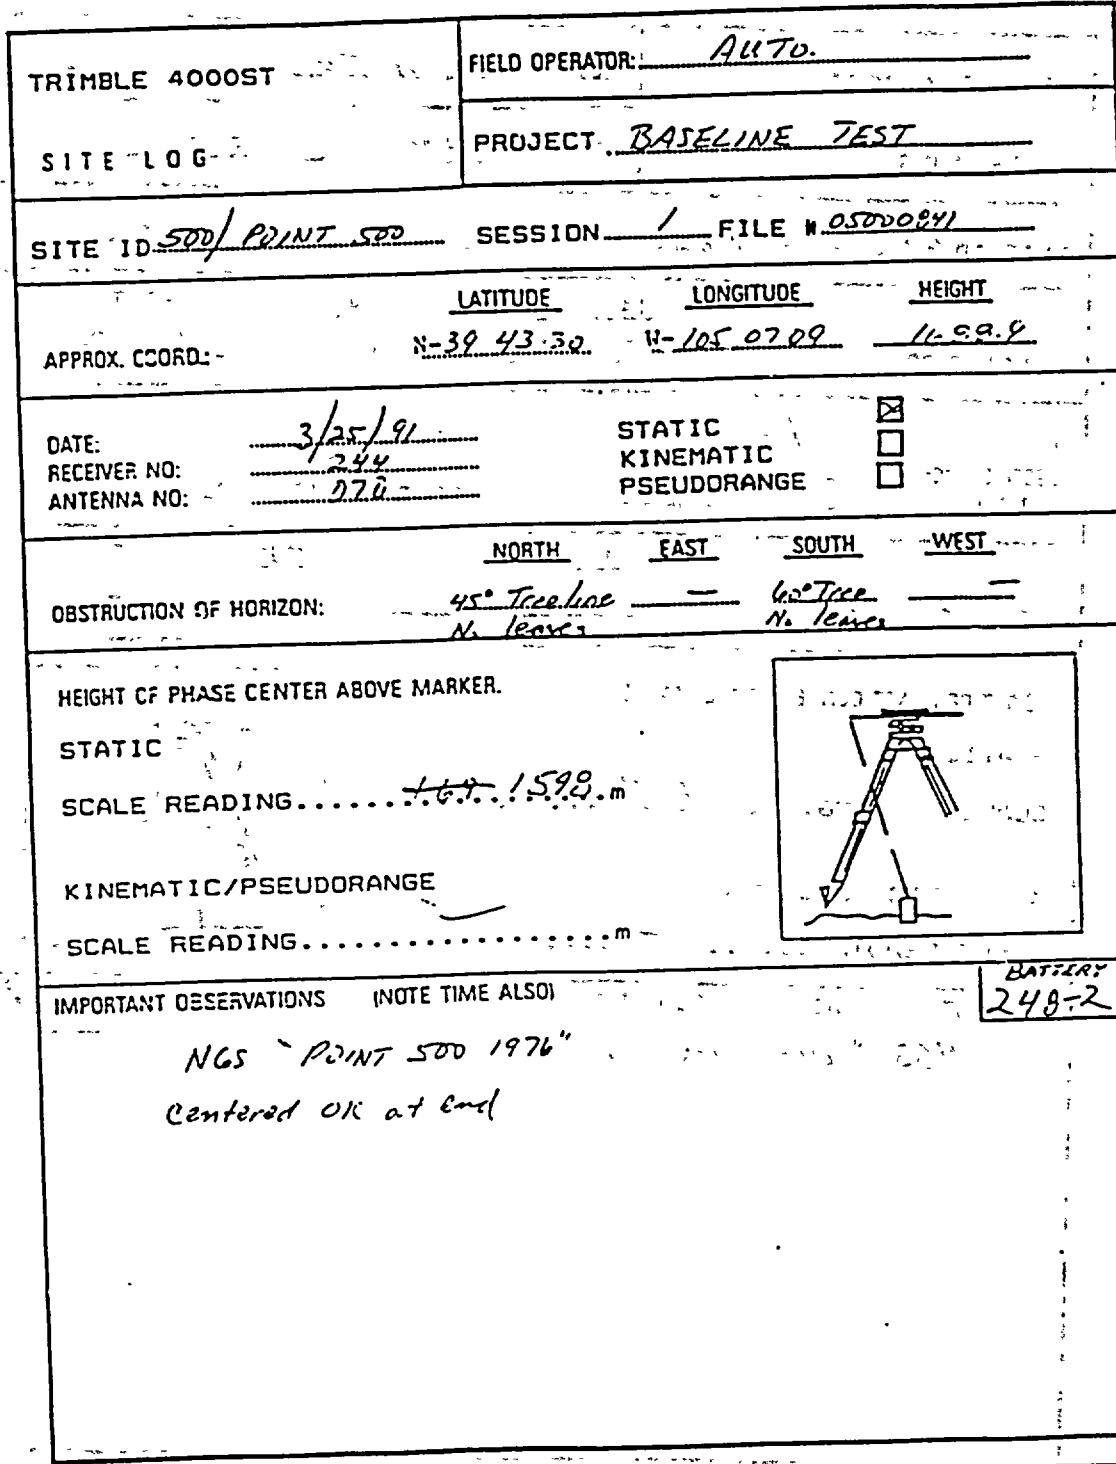 TRIMBLE 4000ST
SITE LOG
FIELD OPERATOR: AUTO.
PROJECT BASELINE TEST
SITE ID 500/ POINT 500 SESSION 1 FILE # 05000841
LATITUDE LONGITUDE HEIGHT
APPROX. COORD.: N-39 43 30 W-105 07 09
DATE: 3/25/91
RECEIVER NO: 244
ANTENNA NO:
STATIC ☒
KINEMATIC ☐
PSEUDORANGE ☐
NORTH EAST SOUTH WEST
OBSTRUCTION OF HORIZON: 45° Treeline — 60° Tree —
No leaves No leaves
HEIGHT OF PHASE CENTER ABOVE MARKER.
STATIC
SCALE READING........ 1.598.m
KINEMATIC/PSEUDORANGE
SCALE READING..................m
IMPORTANT OBSERVATIONS (NOTE TIME ALSO)
BATTERY
248-2
NGS "POINT 500 1976"
Centered OK at End